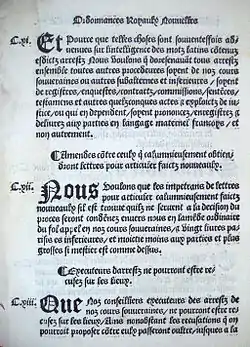 Ordonnances Royaulx Nouuelles
C.xi. Et Pource que telles choses sont souuentesfois ad
uenues sur lintelligence des motz latins cõtenuz
esdictz arrestz Nous Voulons q̃ doresenauãt tous arrestz
ensemble toutes autres procedeures soyent de noz cours
souueraines ou autres subalternes et inferieures, soyent
de registres, enquestes, contractz, commissions, sentẽces,
testamens et autres quelzconques actes & exploictz de iu-
stice, ou qui en dependent, soyent prononcez, enregistrez &
deliurez aux parties en langage maternel francoys, et
non autrement.
Amendes cõtre ceulx q̃ calumnieusement obtien-
dront lettres pour articuler faictz nouueaulx.
C.xii. Nous Voulons que les impetrans de lettres
pour articuler calumnieusement faictz
nouueaulx sil est trouué quilz ne seruent a la decision du
proces seront condẽnez enuers nous en lamẽde ordinaire
du fol appel en noz cours souueraines, & vingt liures pa-
risis es inferieures, et moictie moins aux parties et plus
grosses si mestier est comme dessus.
Executeurs darrestz ne pourront estre re-
cusez sur les lieux.
C.xiii. Que Noz conseilliers executeurs des arrestz de
noz cours souueraines, ne pourront estre re-
cusez sur les lieux, Ains nonobstant les recusations q̃ lon
pourroit proposer cõtre eulx passeront oultre, iusques a la